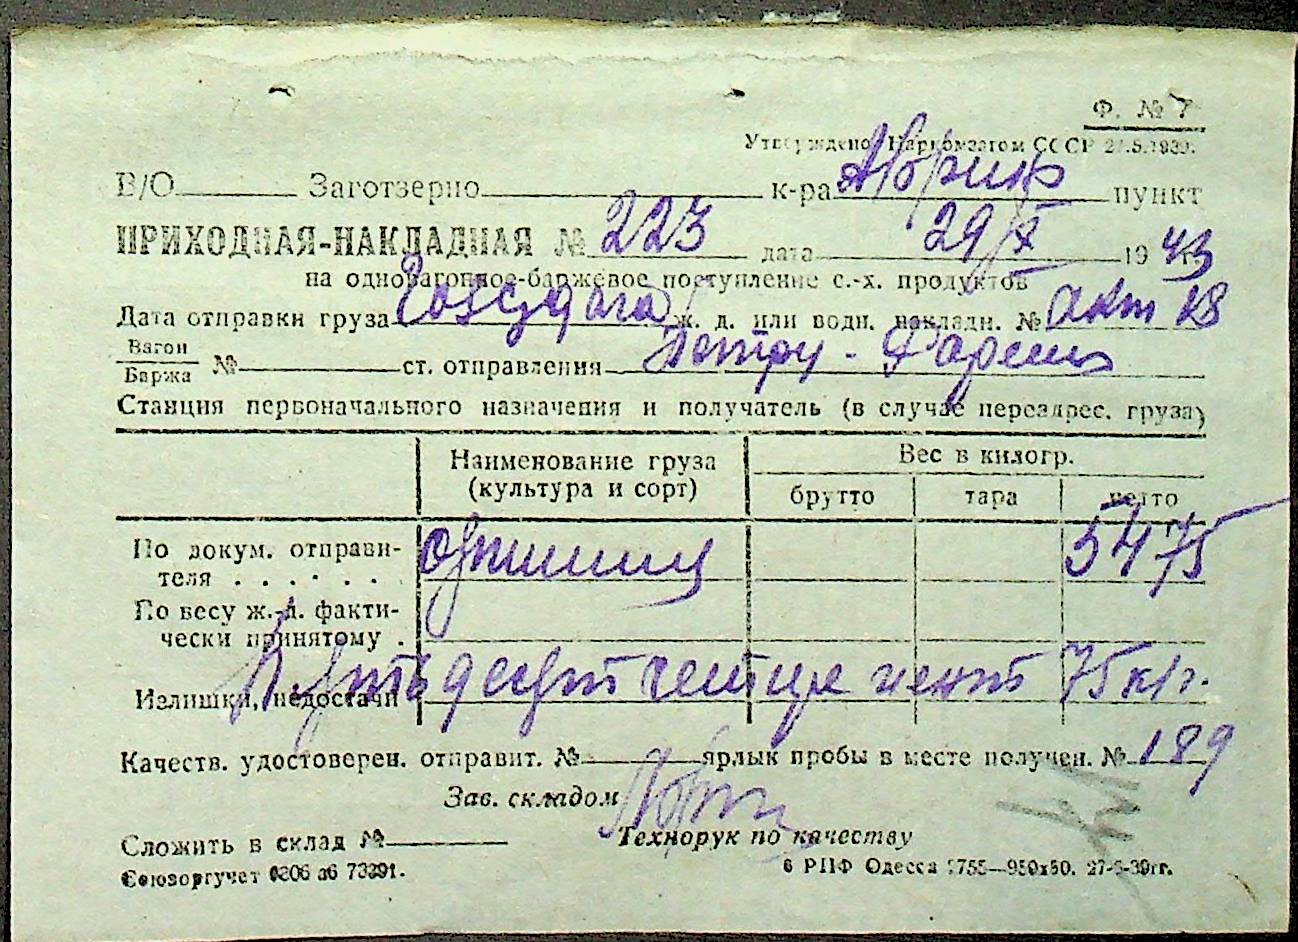 Ф. № 7
Утверждено Наркомзагом СССР 27.5.1939г.
В/О Заготзерно к-ра пункт
ПРИХОДНАЯ-НАКЛАДНАЯ № 223 дата 29/X 1943 г.
на одновагонное-баржевое поступление с.-х. продуктов
Дата отправки груза ж. д. или водн. накладн. № акт 18
Вагон
Баржа № ст. отправления Петру-
Станция первоначального назначения и получатель (в случае переадрес. груза)
Наименование груза Вес в килогр.
(культура и сорт) брутто тара нетто
По докум. отправи-
теля . . . . . . 5475
По весу ж.-д. факти-
чески принятому .
Излишки, недостачи Пятьдесят четыре цент 75 кгр.
Качеств. удостоверен. отправит. № ярлык пробы в месте получен. № 189
Зав. складом
Технорук по качеству
Сложить в склад №
Союзоргучет 0306 аб 73391.
6 РПФ Одесса 2755—950х50. 27-6-39гг.